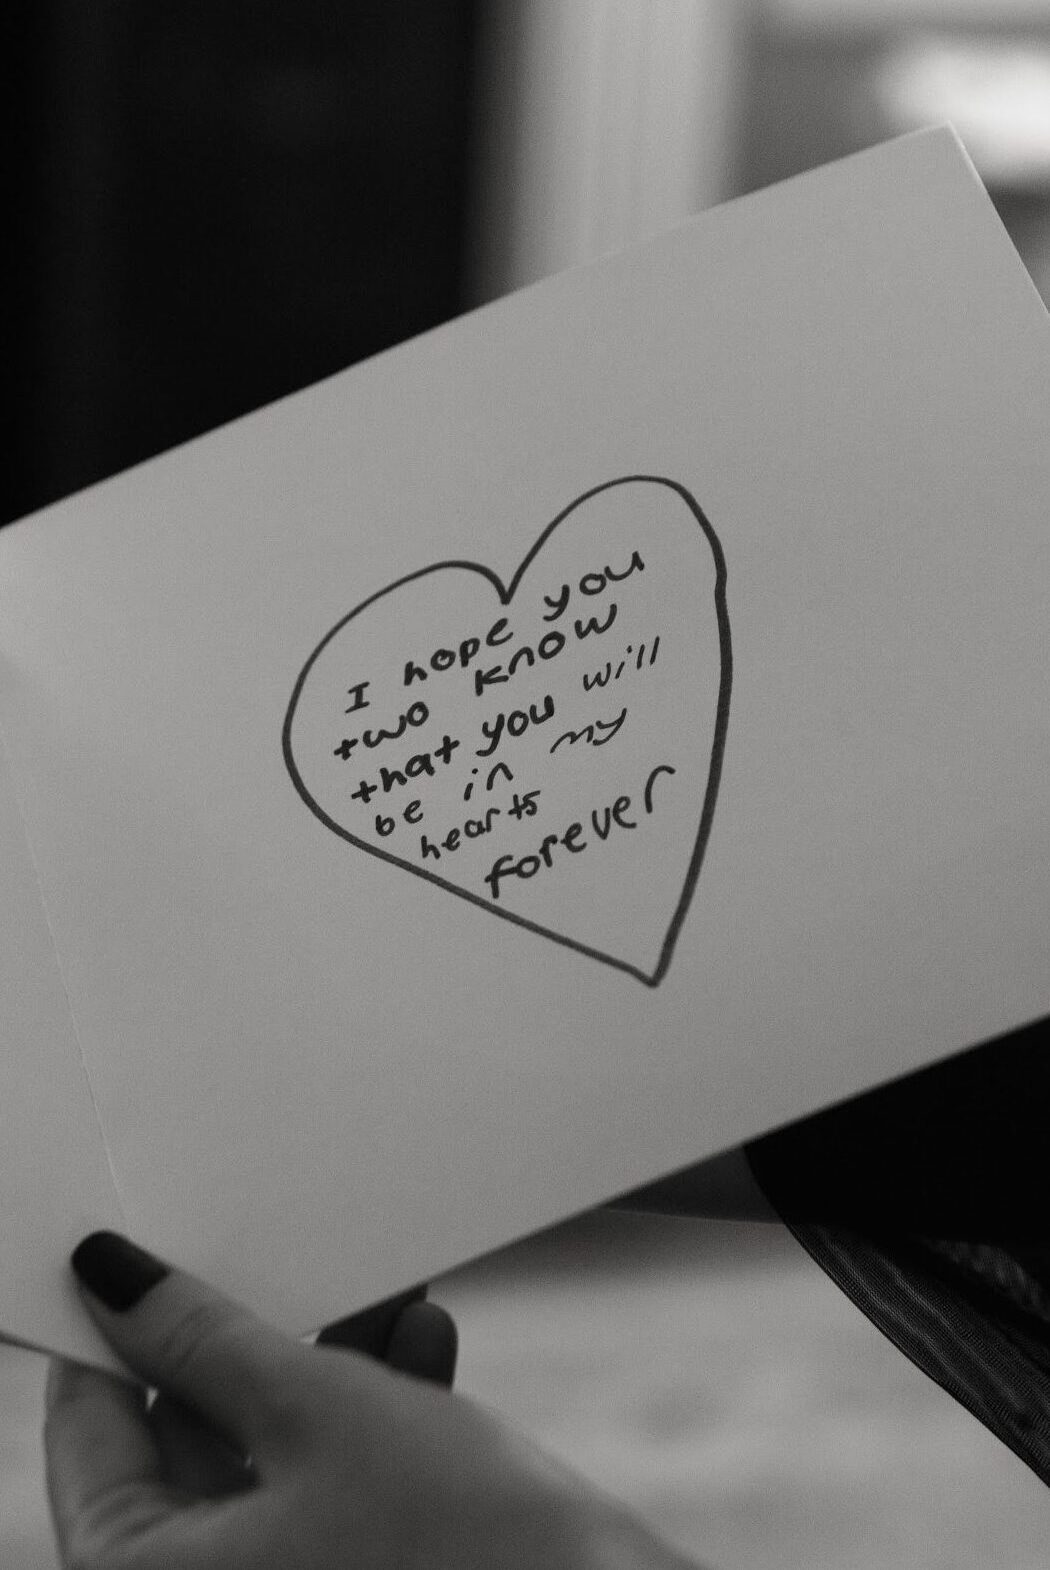 I hope you
two know
that you will
be in my
hearts
forever